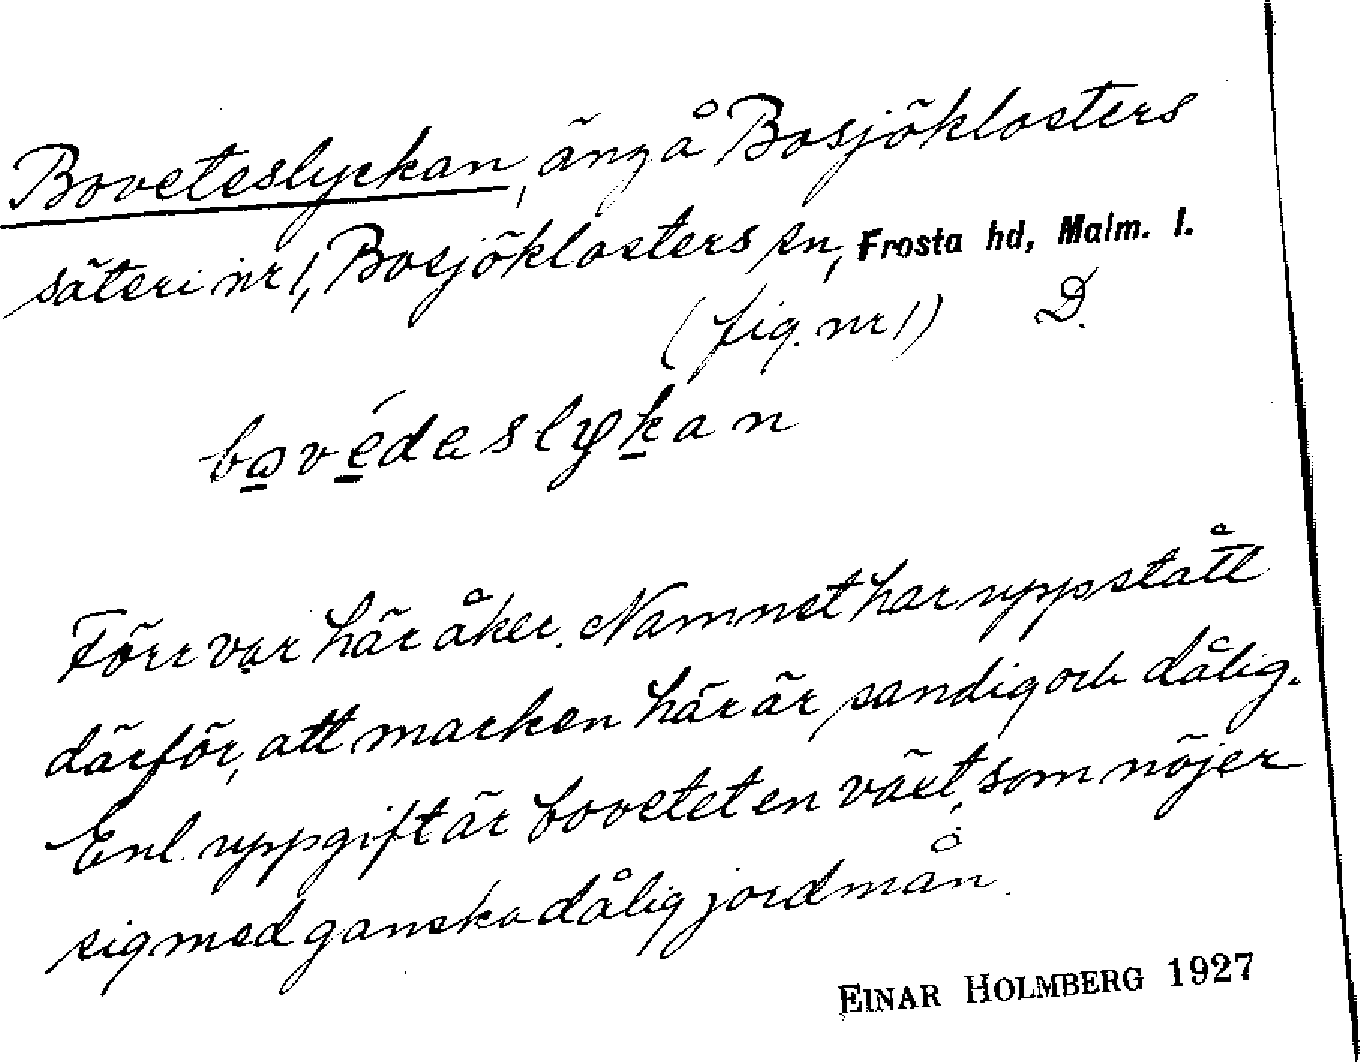 Boveteslyckan, äng å Bosjöklosters
säteri nr 1, Bosjöklosters sn, Frosta hd, Malm. l.
(fig. nr 1) D.
bovédaslykan
Förr var här åker. Namnet har uppstått
därför, att marken här är sandig och dålig.
Enl. uppgift är bovetet en växt, som nöjer
sig med ganska dålig jordmån.
EINAR HOLMBERG 1927